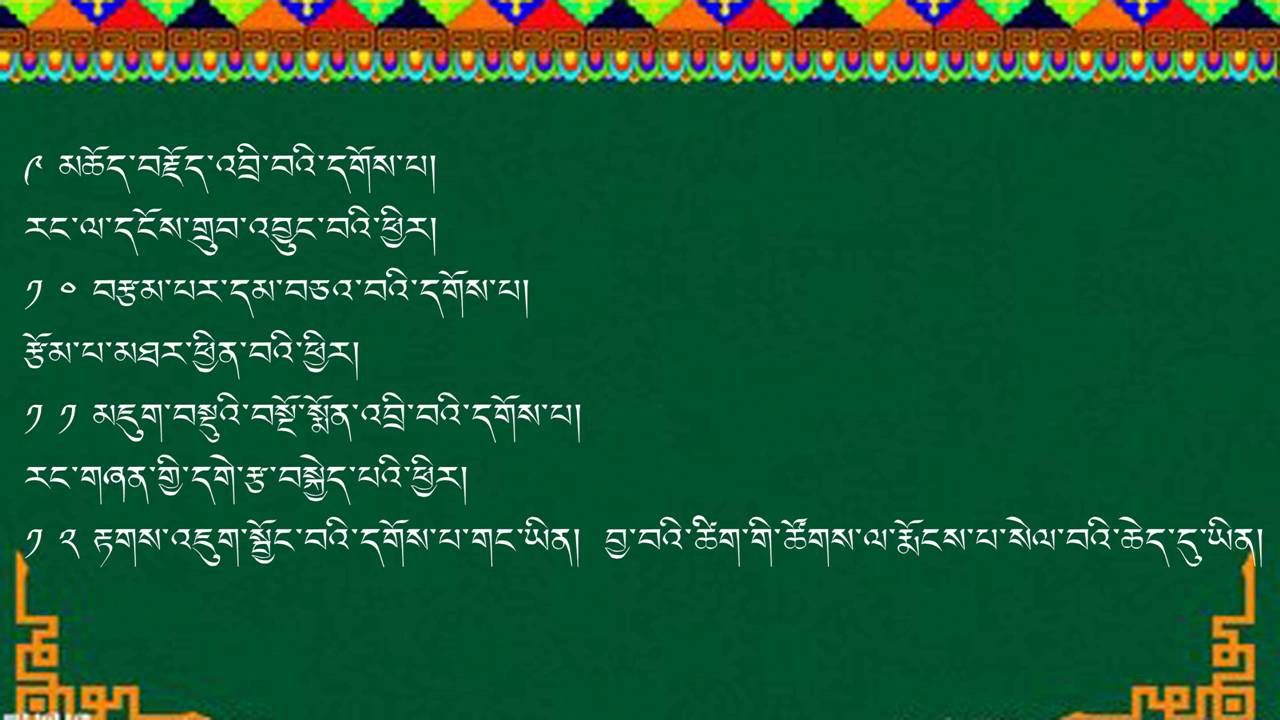 ༩ མཆོད་བརྗོད་འབྲི་བའི་དགོས་པ།
རང་ལ་དངོས་གྲུབ་འབྱུང་བའི་ཕྱིར།
༡ ༠ བརྩམ་པར་དམ་བཅའ་བའི་དགོས་པ།
རྩོམ་པ་མཐར་ཕྱིན་བའི་ཕྱིར།
༡ ༡ མཇུག་བསྡུའི་བསྔོ་སྨོན་འབྲི་བའི་དགོས་པ།
རང་གཞན་གྱི་དགེ་རྩ་བསྐྱེད་པའི་ཕྱིར།
༡ ༢ རྟགས་འཇུག་སྦྱོང་བའི་དགོས་པ་གང་ཡིན། བྱ་བའི་ཚིག་གི་ཚོགས་ལ་རྨོངས་པ་སེལ་བའི་ཆེད་དུ་ཡིན།